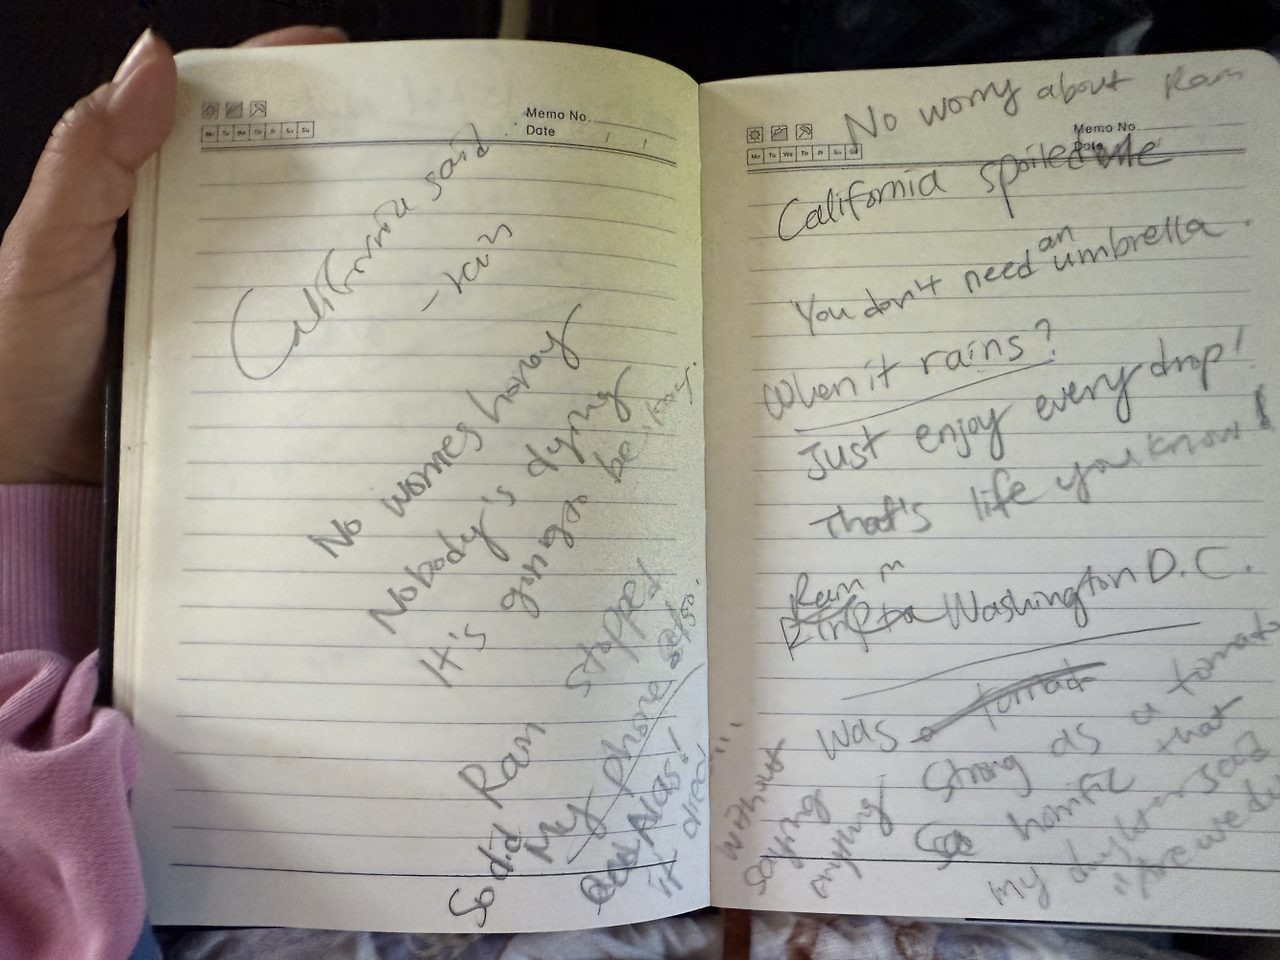 Memo No.
Date / /
Mo Tu We Th Fr Sa Su
California said
- rain
No worries honey
Nobody's dying
It's gonga be
So did Rain stopped
My phone also.
Alas!
it died
Memo No.
Date
Mo Tu We Th Fr Sa Su
No worry about Rain
California spoiled me
You don't need an umbrella
When it rains?
Just enjoy every drop!
That's life you know!
Rain in Washington D.C.
was a tornad
Strong as a tornado
So horrific that
my daughter said
"Are we d
without
saying
anything